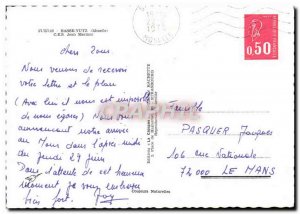 BASSE-YUTZ (Moselle)
C.E.S. Jean Mermoz
Cher tous.
Nous venons de recevoir
votre lettre et le plan
(Avec lui il nous est impossible
de nous égarer) Nous vous
annonçons notre arrivée
au Mans dans l'après midi
du jeudi 27 juin
Dans l'attente de cet heureux
moment je vous embrasse
bien fort.
Famille
PASQUER Jacques
106 rue Nationale
72000 LE MANS
Couleurs Naturelles
0,50